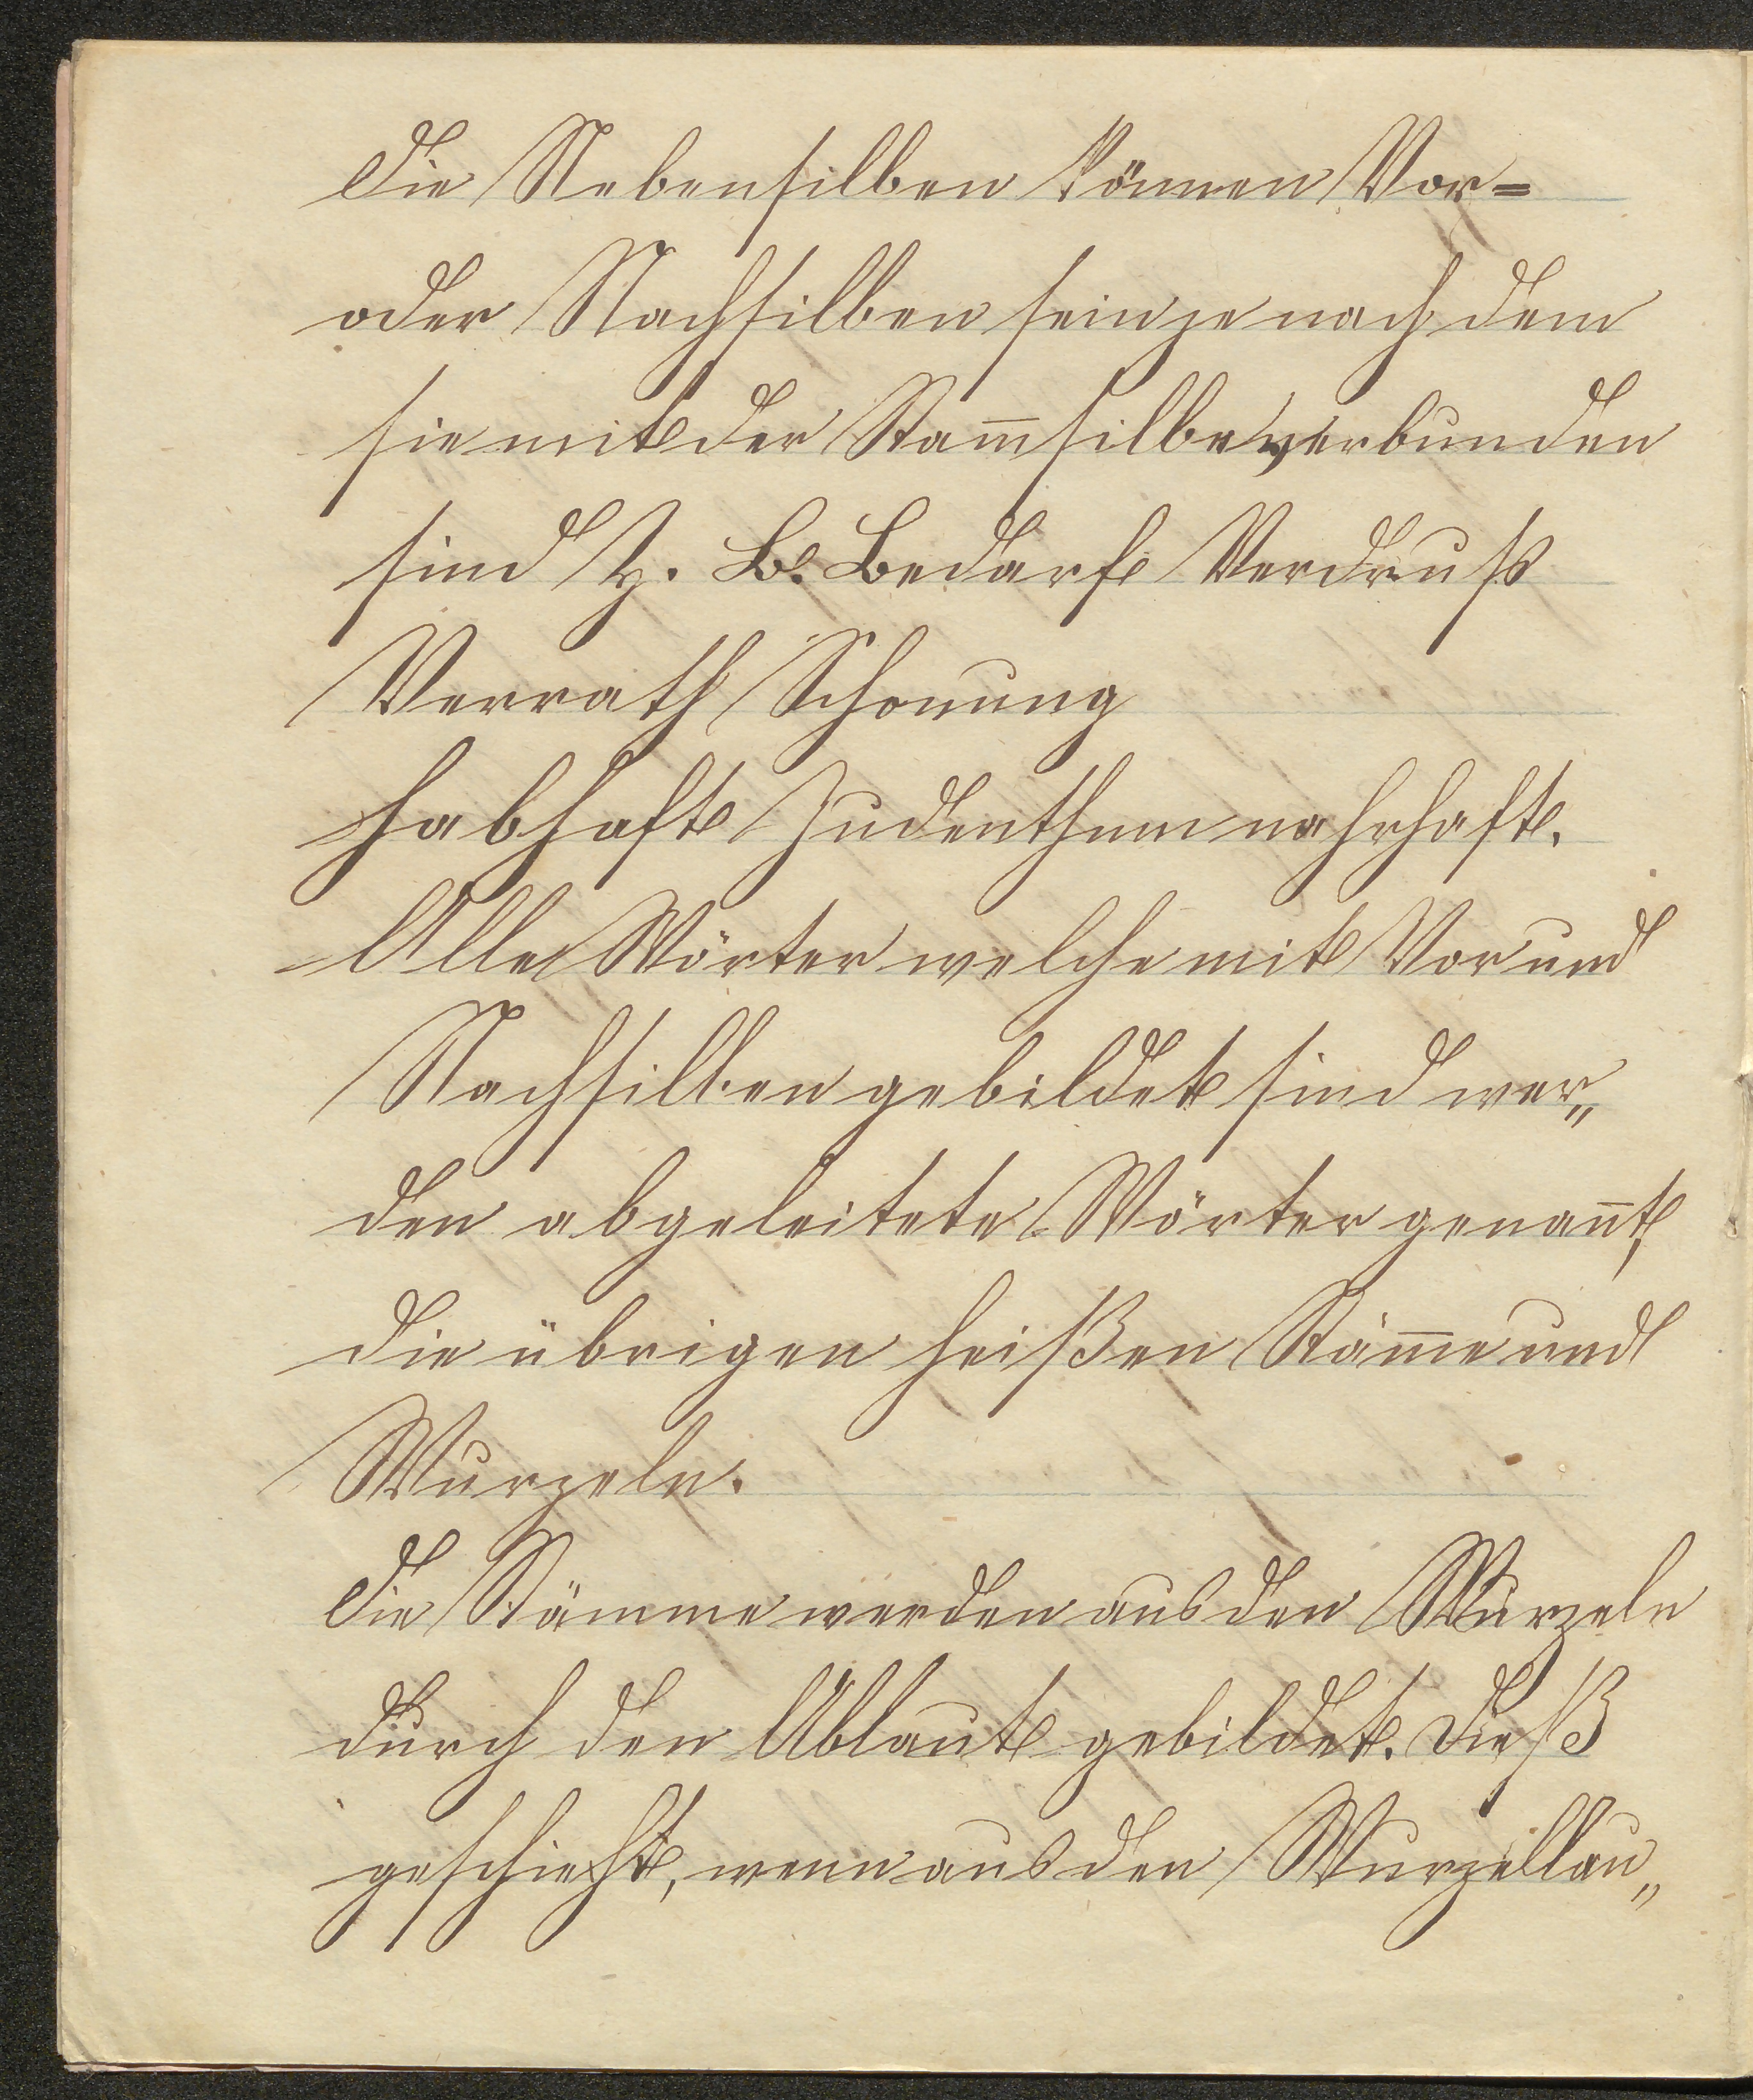 Die Nebensilben können Vor=
oder Nachsilben sein je nach dem
sie mit der Stam̅silbe verbunden
sind z. B. Bedarf Verdruß
Verrath Schonung
habhaft Judenthum nahrhaft.
Alle Wörter welche mit Vor und
Nachsilben gebildet sind wer„
den abgeleitete Wörter genan̅t,
die übrigen heißen Stäm̅e und
Wurzeln.
Die Stämme werden aus den Wurzeln
durch den Ablaut gebildet. Dieß
geschieht, wenn aus den Wurzellau„